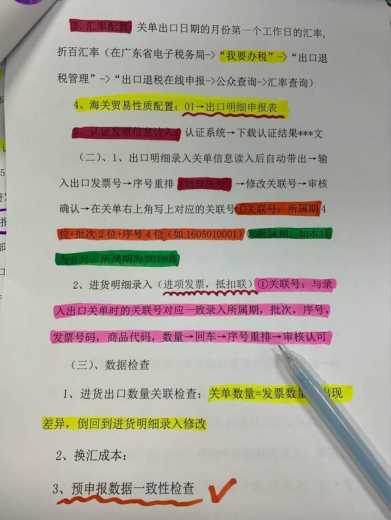 3、汇率配置:关单出口日期的月份第一个工作日的汇率,
折百汇率(在广东省电子税务局->“我要办税”->“出口退
税管理”->“出口退税在线申报->公众查询->汇率查询)
4、海关贸易性质配置:01→出口明细申报表
认证发票信息读入:认证系统→下载认证结果***文
(二)、1、出口明细录入关单信息读入后自动带出→输
入出口发票号→序号重排 →修改关联号→审核
确认→在关单右上角写上对应的关联号①关联号:所属期4
位+批次2位+序号4位(如1605010001)
2、进货明细录入(进项发票,抵扣联)①关联号:与录
入出口关单时的关联号对应一致录入所属期,批次,序号,
发票号码,商品代码,数量→回车→序号重排→审核认可
(三)、数据检查
1、进货出口数量关联检查:关单数量=发票数量 出现
差异,倒回到进货明细录入修改
2、换汇成本:
3、预申报数据一致性检查